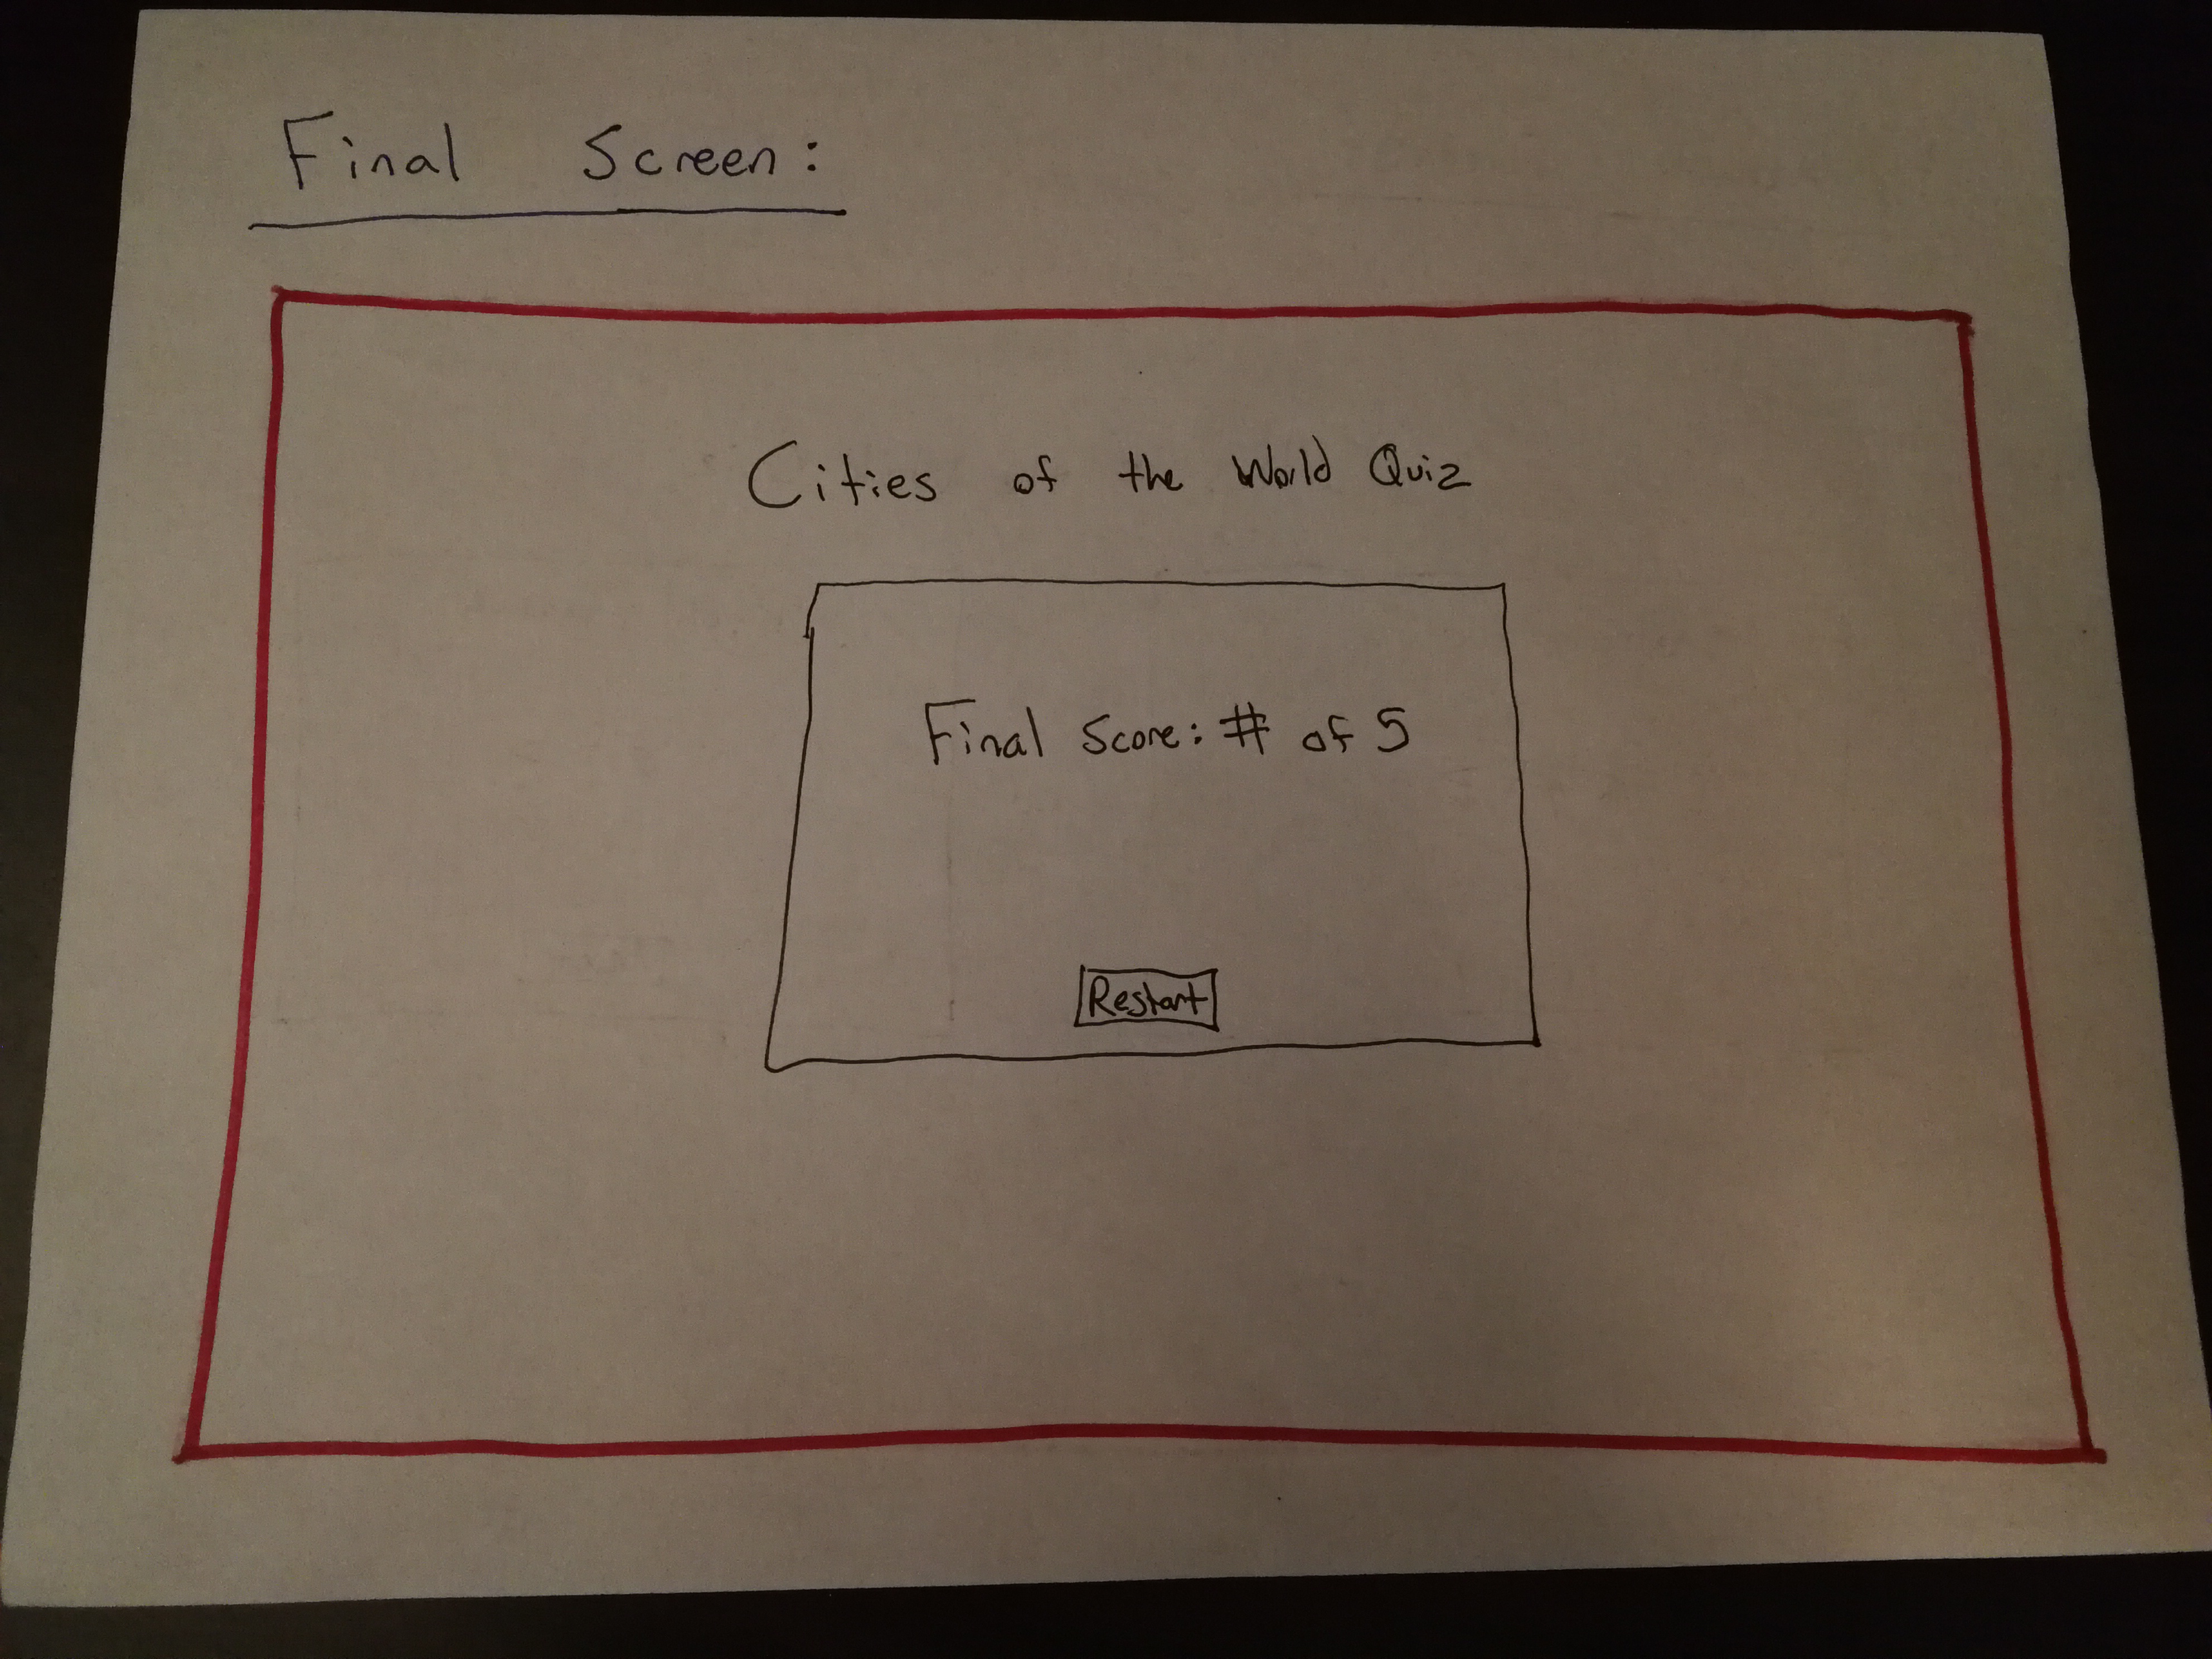 Final Screen:
Cities of the World Quiz
Final Score: # of 5
Restart